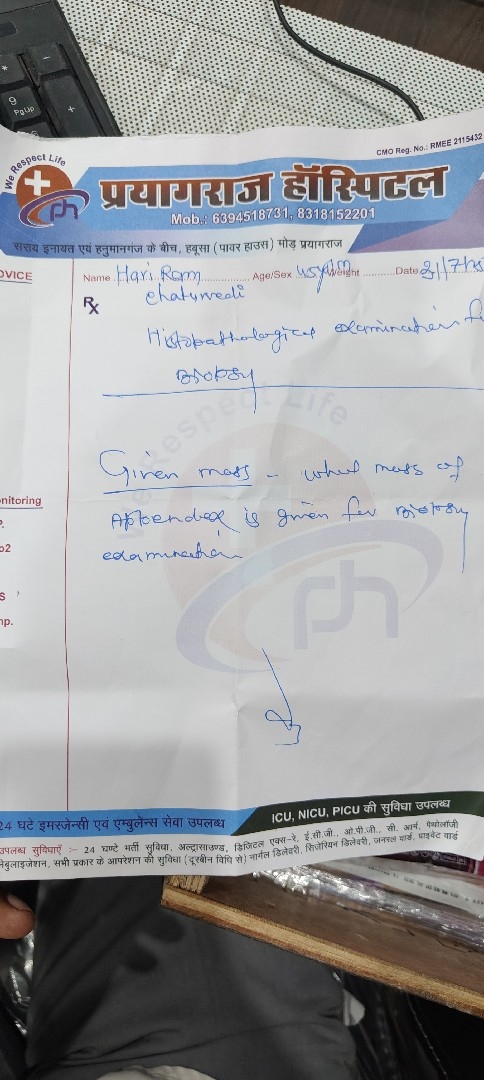 *
-
9
PgUp
+
CMO Reg. No.: RMEE 2115432
We Respect Life
ph
प्रयागराज हॉस्पिटल
Mob.: 6394518731, 8318152201
सराय इनायत एवं हनुमानगंज के बीच, हबूसा (पावर हाउस) मोड़ प्रयागराज
DVICE
Name Hari Ram Age/Sex 45y/m Weight Date
Rx
chaturvedi
Histopathological examination f
Biopsy
We Respect Life
Given mass - whol mass of
nitoring
P.
Appendix is given for Biopsy
o2
examination
S
mp.
ph
24 घंटे इमरजेन्सी एवं एम्बुलेन्स सेवा उपलब्ध
ICU, NICU, PICU की सुविधा उपलब्ध
उपलब्ध सुविधाएँ :- 24 घण्टे भर्ती सुविधा, अल्ट्रासाउण्ड, डिजिटल एक्स-रे, ई.सी.जी., ओ.पी.जी., सी. आर्म, पैथोलॉजी
नेबुलाइजेशन, सभी प्रकार के आपरेशन की सुविधा (दूरबीन विधि से) नार्मल डिलेवरी, सिजेरियन डिलेवरी, जनरल वार्ड, प्राइवेट वार्ड